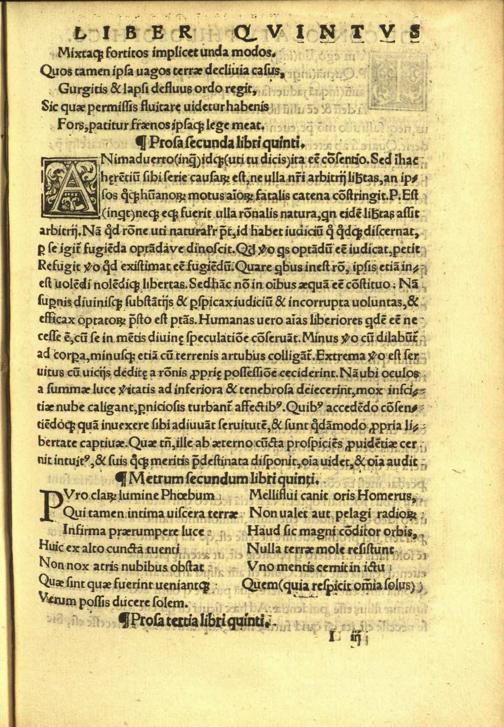 LIBER QVINTVS
Mixtaq; fortitos implicet unda modos.
Quos tamen ipſa uagos terræ decliuia caſus,
Gurgitis & lapſi defluus ordo regit,
Sic quæ permiſſis fluitare uidetur habenis
Fors, patitur frænos ipſaq; lege meat.
¶ Proſa ſecunda libri quinti.
ANimaduerto(inq̃)idq;(uti tu dicis)ita eē cōſentio. Sed ĩhac
herētiũ ſibi ſerie cauſaꝝ eſt, ne ulla nr̃i arbitrij lib̃tas, an ip⸗
ſos q̃q; hũanoꝝ motus aĩoꝝ fatalis catena cōſtringit. P. Eſt
(inqt) neq; eq; fuerit ulla rōnalis natura, qn eidē lib̃tas aſſit
arbitrij. Nã qd rōne uti natural'r p̃t, id habet iudiciũ q̃ qdq; diſcernat,
ꝑ ſe igit̃ fugiēda optãdaue dinoſcit. Qd ỹo qs optãdũ eē iudicat, petit
Refugit ỹo qd exiſtimat eē fugiēdũ. Quare qbus ineſt rō, ipſis etiã in⸗
eſt uolēdi nolēdiq; libertas. Sed hãc nō in oĩbus æquã eē cōſtituo. Nã
ſuꝑnis diuiniſq; ſubſtãtijs & ꝑſpicax iudiciũ & incorrupta uoluntas, &
efficax optatoꝝ p̃ſto eſt ptãs. Humanas uero aĩas liberiores qdē eē ne
ceſſe ē, cũ ſe in mētis diuinę ſpeculatiōe cōſeruãt. Minus ỹo cũ dilabũt̃
ad corꝑa, minuſq; etiã cũ terrenis artubius colligãt̃. Extrema ỹo eſt ſer
uitus cũ uicijs deditę a rōnis, ꝓprię poſſeſſiōe ceciderint. Nã ubi oculos
a ſummæ luce ỹitatis ad inferiora & tenebroſa deiecerint, mox inſci⸗
tiæ nube caligant, ꝑnicioſis turbant̃ affectibꝰ. Quibꝰ accedēdo cōſen⸗
tiēdoq; quã inuexere ſibi adiuuãt ſeruitutē, & ſunt qdãmodo ꝓpria li⸗
bertate captiuæ. Quæ tñ, ille ab æterno cũcta proſpiciēs, ꝓuidētiæ cer
nit intuitꝰ, & ſuis q̃q; meritis p̃deſtinata diſponit, oĩa uidet, & oĩa audit
¶ Metrum ſecundum libri quinti.
PVro claꝝ lumine Phœbum
Qui tamen intima uiſcera terræ
Infirma prærumpere luce
Huic ex alto cuncta tuenti
Non nox atris nubibus obſtat
Quæ ſint quæ fuerint ueniantq;
Verum poſſis ducere ſolem.
Melliflui canit oris Homerus,
Non ualet aut pelagi radioꝝ
Haud ſic magni cōditor orbis,
Nulla terræ mole reſiſtunt
Vno mentis cernit in ictu
Quem(quia reſpicit om̃ia ſolus)
¶ Proſa tertia libri quinti.
L iij